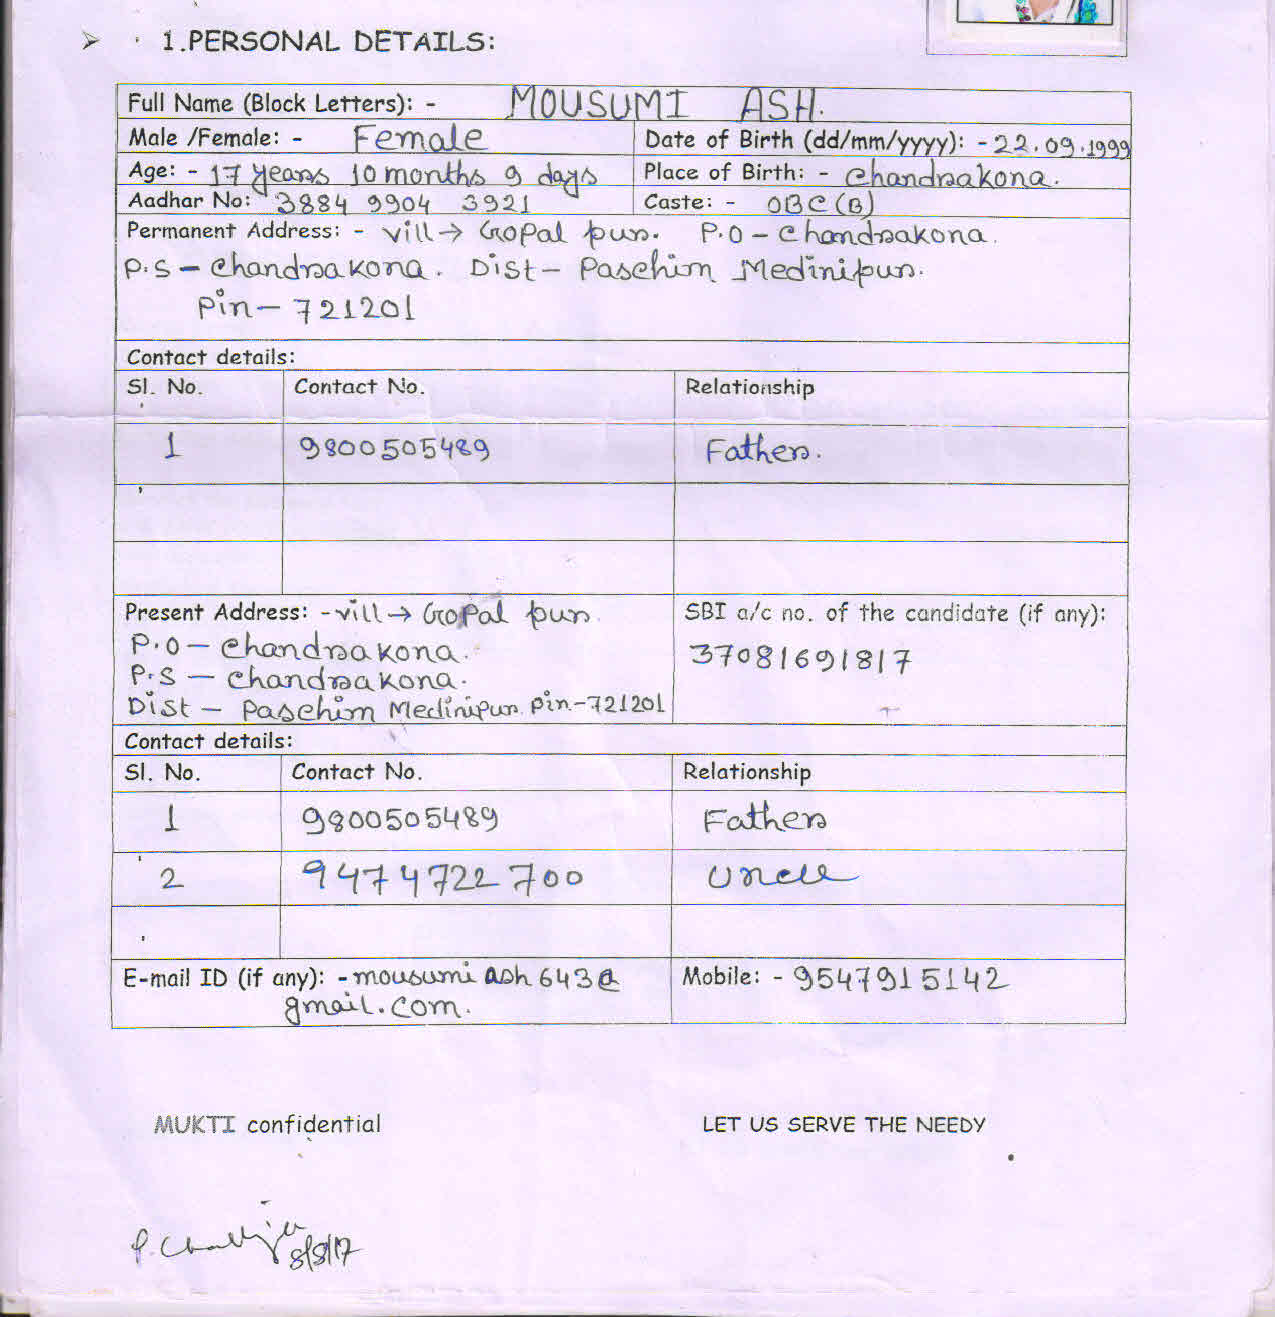 ➢ 1.PERSONAL DETAILS:
Full Name (Block Letters): - MOUSUMI ASH.
Male /Female: - Female Date of Birth (dd/mm/yyyy): - 22.09.1999
Age: - 17 years 10 months 9 days Place of Birth: - Chandrakona.
Aadhar No: 3884 9904 3921 Caste: - OBC (B)
Permanent Address: - vill → Gopal pur. P.O – Chandrakona.
P.S – Chandrakona. Dist – Paschim Medinipur.
Pin – 721201
Contact details:
Sl. No. Contact No. Relationship
1 9800505489 Father.
Present Address: - vill → Gopal pur.
P.O – Chandrakona.
P.S – Chandrakona.
Dist – Paschim Medinipur. Pin-721201
SBI a/c no. of the candidate (if any):
37081691817
Contact details:
Sl. No. Contact No. Relationship
1 9800505489 Father
2 9474722700 Uncle
E-mail ID (if any): - mousumi ash 643@
gmail.com.
Mobile: - 9547915142
MUKTI confidential LET US SERVE THE NEEDY
8/8/17